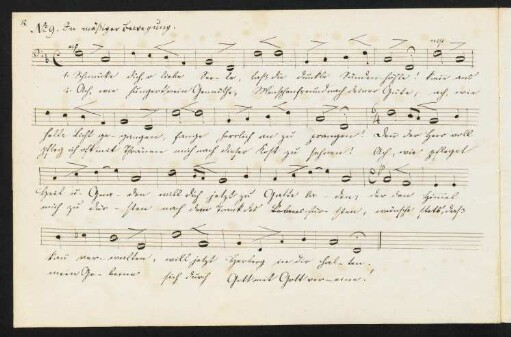 12
No 9. In mäßiger Bewegung.
mf
1. Schmücke dich, o liebe See-le, laß die dunkle Sündenhöhle! komm ans
2. Ach, wie hungert mein Gemüthe, Menschenfreund nach deiner Güte; ach, wie
helle Licht ge-gangen, fange herrlich an zu prangen! Denn der Herr voll
pfleg ich oft mit Thränen mich nach dieser Kost zu sehnen! Ach, wie pfleget
Heil u. Gna-den will dich jetzt zu Gaste la-den; der den Himmel
mich zu dür-sten nach dem Trank des Lebens-für-sten, wünsche stets, daß
kann ver-walten, will jetzt Herberg in dir hal-ten.
mein Ge-beine sich durch Gott mit Gott ver-eine!